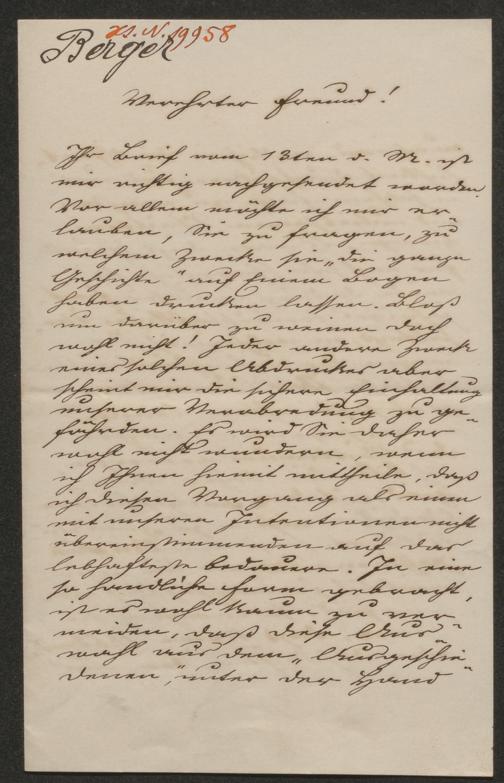 Z. N. 19958
Berger
Verehrter Freund!
Ihr Brief vom 13ten d. M. ist
mir richtig nachgesendet worden.
Vor allem möchte ich mir er-
lauben, Sie zu fragen, zu
welchem Zwecke sie „die ganze
Geschichte" auf Einem Bogen
haben drucken lassen. Bloß
um darüber zu weinen doch
wohl nicht! Jeder andere Zweck
eines solchen Abdruckes aber
scheint mir die sichere Einhaltung
unserer Verabredung zu ge-
fährden. Es wird Sie daher
wohl nicht wundern, wenn
ich Ihnen hiemit mittheile, daß
ich diesen Vorgang als einen
mit unseren Intentionen nicht
übereinstimmenden auf das
lebhafteste bedauere. In eine
so handliche Form gebracht,
ist es wohl kaum zu ver-
meiden, daß diese Aus-
wahl aus dem „Ausgeschie-
denen", unter der Hand